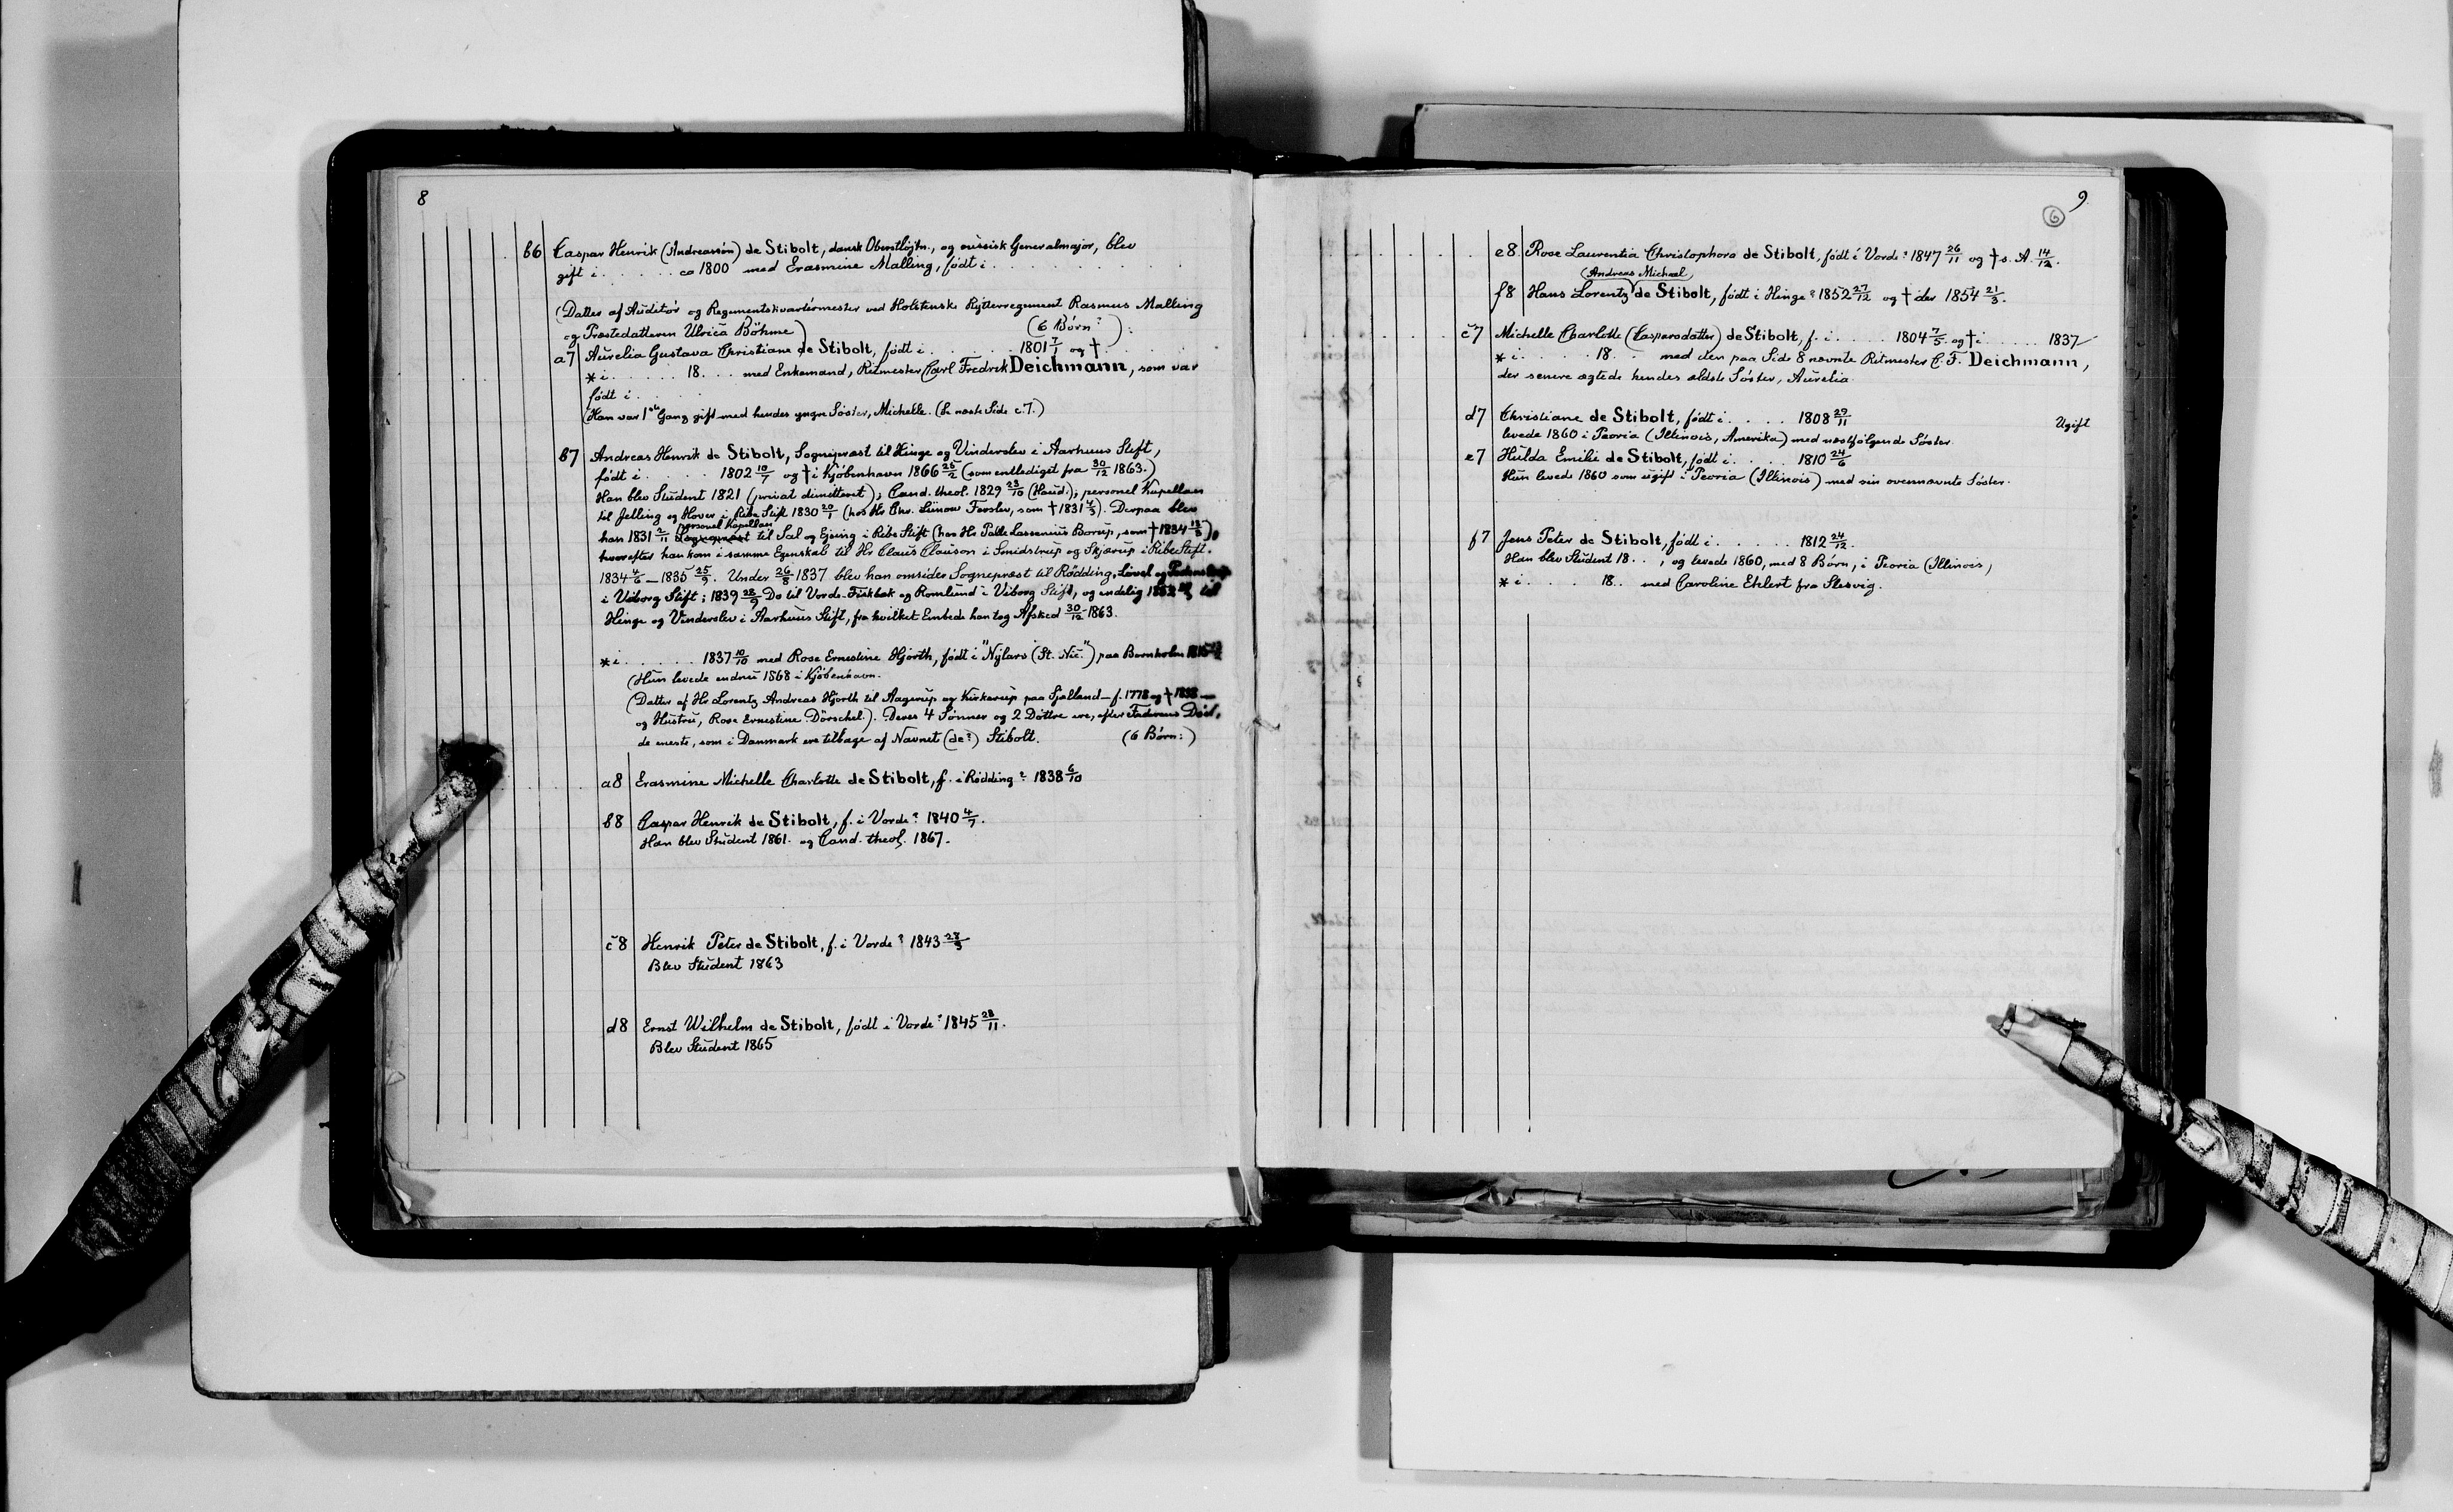 8
b6 Caspar Henrik (Andreassøn) de Stibolt, dansk Oberstløjtn., og russisk Generalmajor, blev
gift i . . . . . ca 1800 med Erasmine Malling, født i . . . . . . . .
(Datter af Auditør og Regimentskvartermester ved Holstenske Rytterregiment Rasmus Malling
og Præstedatteren Ulrica Böhme) (6 Børn?):
a7 Aurelia Gustava Christiane de Stibolt, født i . . . . . 1801 7/1 og † . . . .
* i . . . . . . 18 . . . med Enkemand, Ritmester Carl Fredrik Deichmann, som var
født i . . . . .
(Han var 1ste Gang gift med hendes yngre Søster, Michelle. (Se næste Side c.7.)
b7 Andreas Henrik de Stibolt, Sognepræst til Hinge og Vinderslev i Aarhuus Stift,
født i . . . . . 1802 10/7 og † i Kjøbenhavn 1866 25/2 (som entlediget fra 30/12 1863.)
Han blev Student 1821 (privat dimitteret); Cand. theol. 1829 23/10 (Haud.); personel Kapellan
til Jelling og Hover i Ribe Stift 1830 20/1 (hos Hr Chr. Limow Fersler, som † 1831 4/5). Derpaa blev
personel Kapellan
han 1831 2/11 Sognepræst til Sal og Ejsing i Ribe Stift (hos Hr Palle Lassenius Borup, som † 1834 13/3),
hvorefter han kom i samme Egenskab til Hr Claus Clauson i Smidstrup og Skjærup i Ribe Stift.
1834 4/6 — 1835 25/9. Under 26/8 1837 blev han omsider Sognepræst til Rødding, Løvel og
i Viborg Stift; 1839 28/9 Do til Vorde-Fiskbæk og Romlund i Viborg Stift, og endelig 1852 til
Hinge og Vinderslev i Aarhuus Stift, fra hvilket Embede han tog Afsked 30/12 1863.
* i . . . . . . . 1837 10/10 med Rose Ernestine Hjorth, født i "Nylars (St. Nic.") paa Bornholm
(Hun levede endnu 1868 i Kjøbenhavn.
(Datter af Hr Lorentz Andreas Hjorth til Aagerup og Kirkerup paa Sjælland — f. 1778 og † 1838 —
og Hustru, Rose Ernestine Dörschel.). Deres 4 Sønner og 2 Døttre ere, efter Faderens Død,
de eneste, som i Danmark ere tilbage af Navnet (de?) Stibolt. (6 Børn:)
a8 Erasmine Michelle Charlotte de Stibolt, f. i Rødding? 1838 6/10
b8 Caspar Henrik de Stibolt, f. i Vorde? 1840 4/7.
Han blev Student 1861. og Cand. theol. 1867.
c8 Henrik Peter de Stibolt, f. i Vorde? 1843 28/3
Blev Student 1863
d8 Ernst Wilhelm de Stibolt, født i Vorde? 1845 28/11.
Blev Student 1865
9.
6
e8 Rose Laurentia Christophora de Stibolt, født i Vorde? 1847 26/11 og † s. A. 14/12.
(Andreas Michael)
f8 Hans Lorentz de Stibolt, født i Hinge? 1852 27/12 og † der 1854 21/3.
c7 Michelle Charlotte (Caspersdatter) de Stibolt, f. i . . . . . 1804 7/5 og † i . . . . . 1837
* i . . . . . 18 . . med den paa Side 8 nævnte Ritmester C. F. Deichmann,
der senere ægtede hendes ældste Søster, Aurelia.
d7 Christiane de Stibolt, født i . . . . 1808 29/11 Ugift
levede 1860 i Peoria (Illinois, Amerika) med næstfølgende Søster.
e7 Hulda Emilie de Stibolt, født i . . . . 1810 24/6
Hun levede 1860 som ugift i Peoria (Illinois) med sin ovennævnte Søster.
f7 Jens Peter de Stibolt, født i . . . . . 1812 24/12.
Han blev Student 18 . . , og levede 1860, med 8 Børn, i Peoria (Illinois,)
* i . . . . . 18 . . med Caroline Ehlert fra Slesvig.